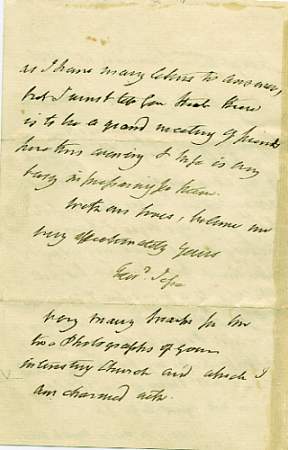 as I have many letters to answer,
but I must tell you that there
is to be a grand meeting of friends
here this evening & wife is very
busy in preparing for them.
With our loves, believe me
very affectionately yours
Geo.
very many thanks for the
two Photographs of your
interesting Church and which I
am charmed with.